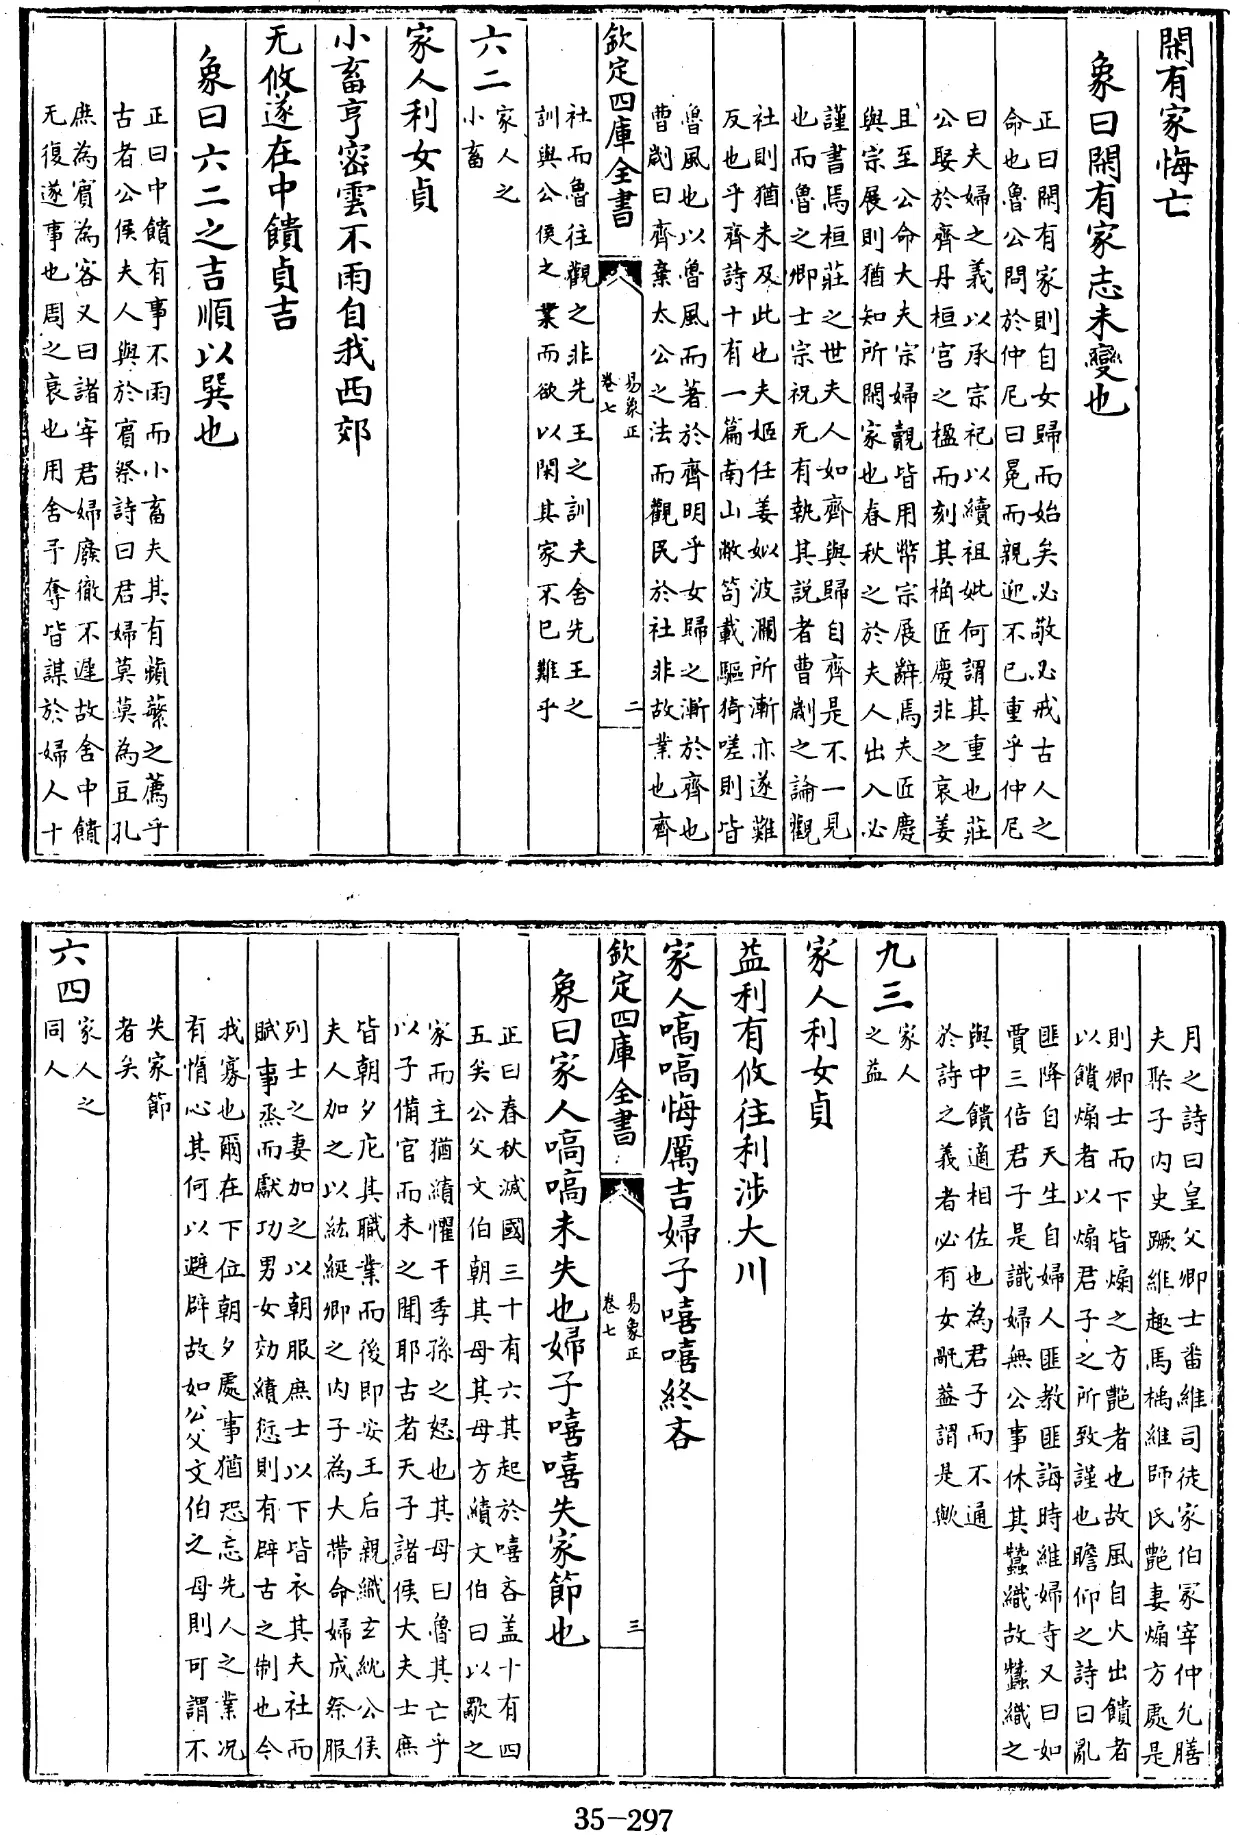 閑有家悔亡
象曰閑有家志未變也
正曰閑有家則自女歸而始矣必敬必戒古人之
命也魯公問於仲尼曰冕而親迎不已重乎仲尼
曰夫婦之義以承宗祀以續祖妣何謂其重也莊
公娶於齊丹桓宮之楹而刻其桷匠慶非之哀姜
且至公命大夫宗婦覿皆用幣宗展辭焉夫匠慶
與宗展則猶知所閑家也春秋之於夫人出入必
謹書焉桓莊之世夫人如齊與歸自齊是不一見
也而魯之卿士宗祝无有執其説者曹劌之論觀
社則猶未及此也夫姬任姜姒波瀾所漸亦遂難
反也乎齊詩十有一篇南山敝笱載驅猗嗟則皆
魯風也以魯風而著於齊明乎女歸之漸於齊也
曹劌曰齊棄太公之法而觀民於社非故業也齊
欽定四庫全書
易象正
卷七
二
社而魯往觀之非先王之訓夫舍先王之
訓與公侯之業而欲以閑其家不已難乎
六二
家人之
小畜
家人利女貞
小畜亨密雲不雨自我西郊
无攸遂在中饋貞吉
象曰六二之吉順以巽也
正曰中饋有事不雨而小畜夫其有蘋蘩之薦乎
古者公侯夫人與於賓祭詩曰君婦莫莫為豆孔
庶為賓為客又曰諸宰君婦廢徹不遲故舍中饋
无復遂事也周之衰也用舍予奪皆謀於婦人十
月之詩曰皇父卿士番維司徒家伯冢宰仲允膳
夫聚子内史蹶維趣馬楀維師氏艶妻煽方處是
則卿士而下皆煽之方艶者也故風自火出饋者
以饋煽者以煽君子之所致謹也瞻仰之詩曰亂
匪降自天生自婦人匪教匪誨時維婦寺又曰如
賈三倍君子是識婦無公事休其蠶織故蠶織之
與中饋適相佐也為君子而不通
於詩之義者必有女戹益謂是歟
九三
家人
之益
家人利女貞
益利有攸往利涉大川
家人嗃嗃悔厲吉婦子嘻嘻終吝
欽定四庫全書
易象正
卷七
三
象曰家人嗃嗃未失也婦子嘻嘻失家節也
正曰春秋滅國三十有六其起於嘻吝盖十有四
五矣公父文伯朝其母其母方績文伯曰以歜之
家而主猶績懼干季孫之怒也其母曰魯其亡乎
以子備官而未之聞耶古者天子諸侯大夫士庶
皆朝夕庀其職業而後即安王后親織玄紞公侯
夫人加之以紘綖卿之内子為大帶命婦成祭服
列士之妻加之以朝服庶士以下皆衣其夫社而
賦事烝而獻功男女効績愆則有辟古之制也今
我寡也爾在下位朝夕處事猶恐忘先人之業况
有惰心其何以避辟故如公父文伯之母則可謂不
失家節
者矣
六四
家人之
同人
35-297